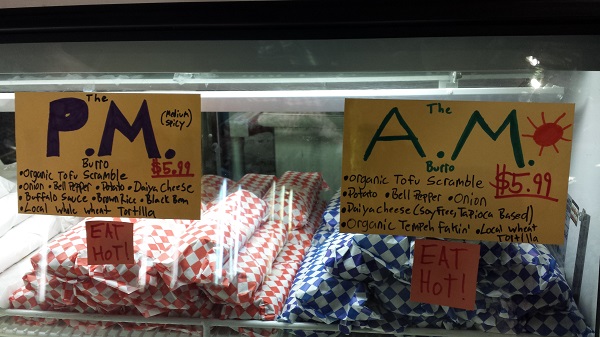 The
P.M.
(Medium Spicy)
Burro
$5.99
•Organic Tofu Scramble
•Onion •Bell Pepper •Potato •Daiya Cheese
•Buffalo Sauce •Brown Rice •Black Bean
•Local whole wheat Tortilla
EAT
HOT!
The
A.M.
Burro
$5.99
•Organic Tofu Scramble
•Potato •Bell Pepper •Onion
•Daiya cheese (soy Free, Tapioca Based)
•Organic Tempeh Fakin' •Local wheat
Tortilla
EAT
HOT!